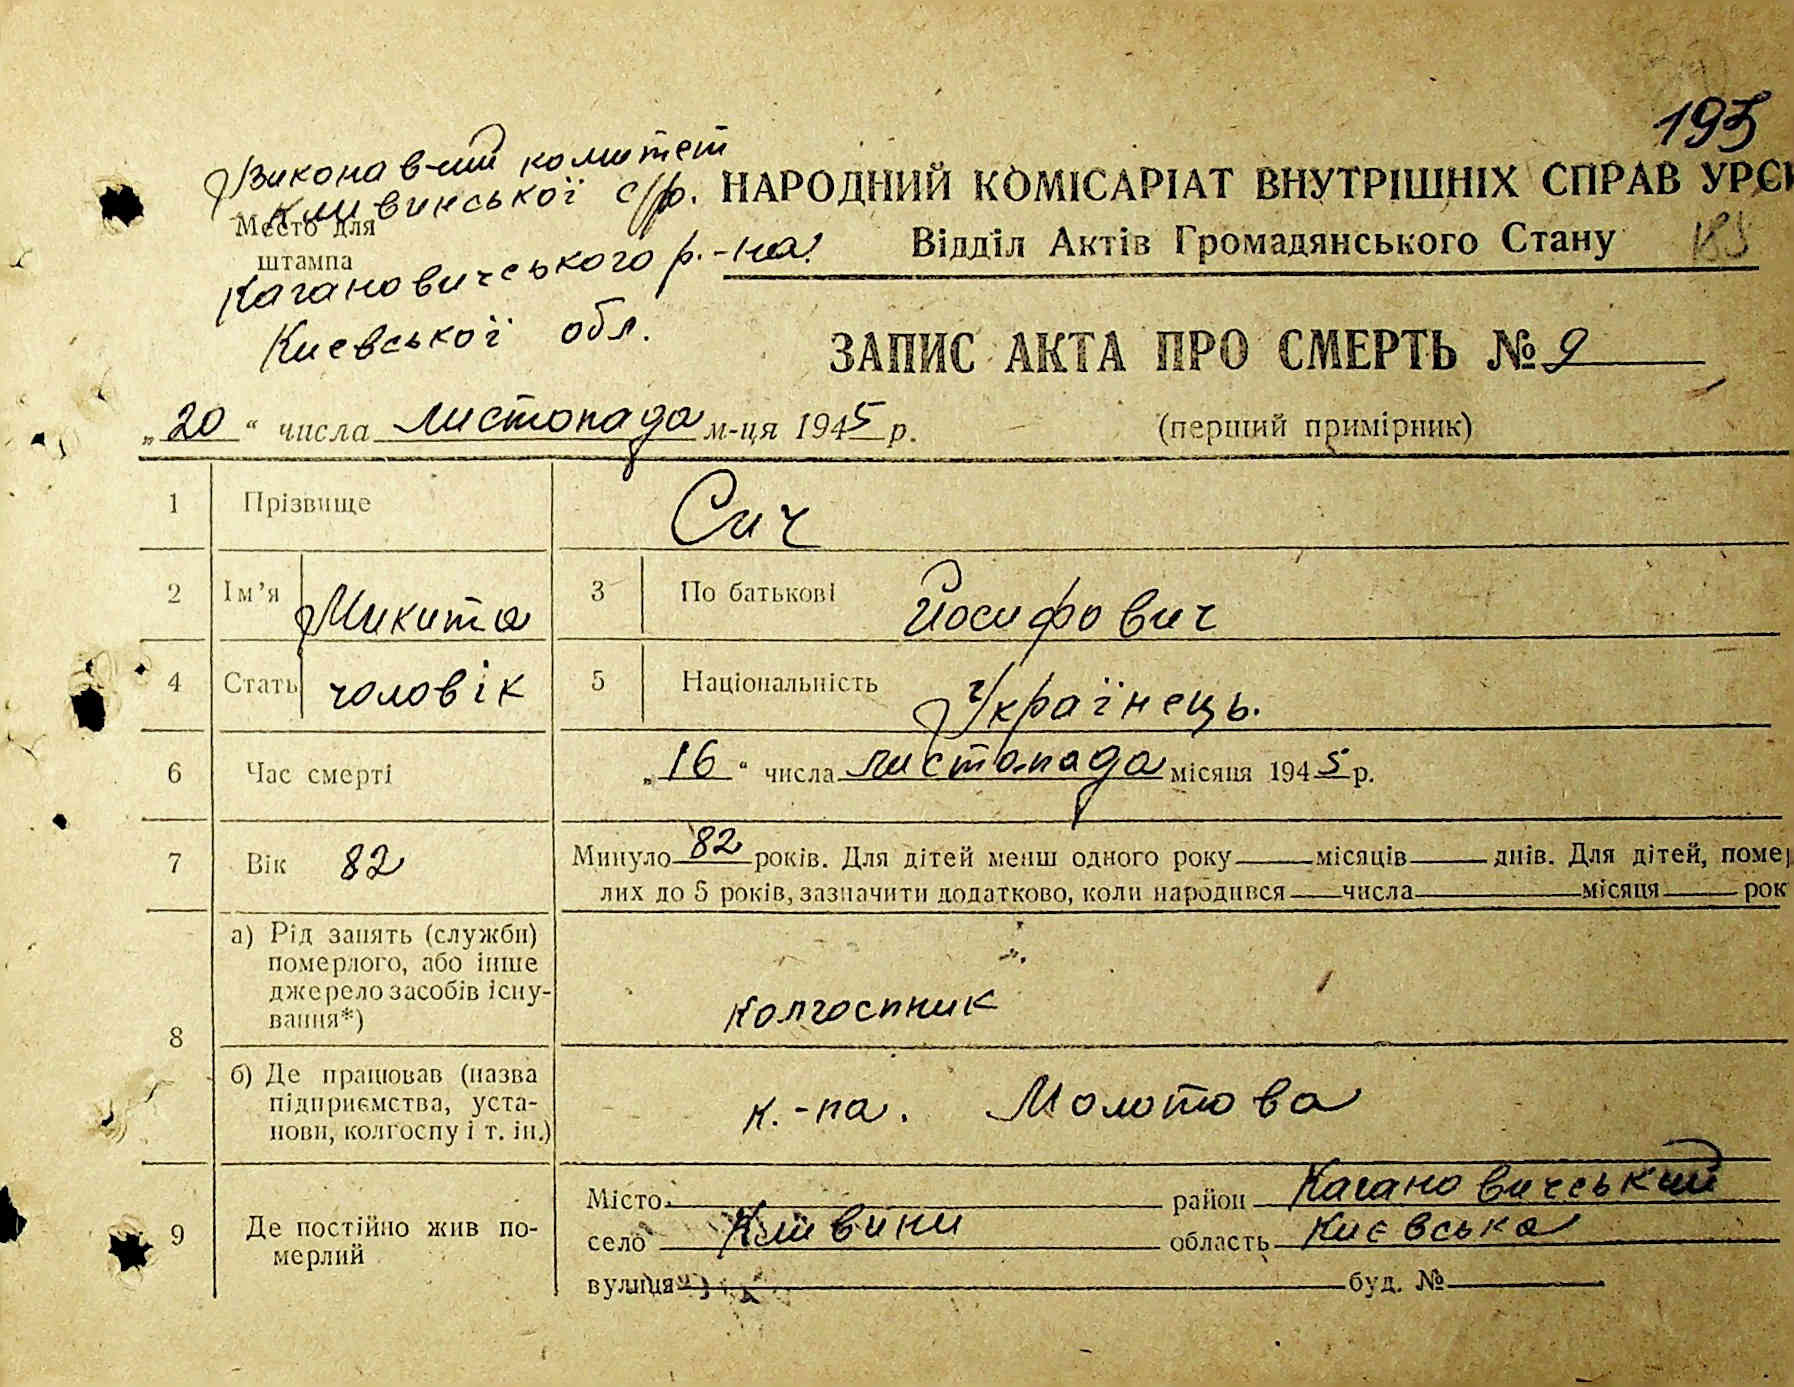 193
Виконавчий комітет
Кливинської с/р. НАРОДНИЙ КОМІСАРІАТ ВНУТРІШНІХ СПРАВ УРСР
Место для
штампа
Відділ Актів Громадянського Стану 185
Кагановичського р.-на.
Києвської обл.
ЗАПИС АКТА ПРО СМЕРТЬ № 9
„20“ числа листопада м-ця 1945 р. (перший примірник)
1 Прізвище Сич
2 Ім’я Микита 3 По батькові Йосифович
4 Стать чоловік 5 Національність Українець.
6 Час смерті „16“ числа листопада місяця 1945 р.
7 Вік 82 Минуло 82 років. Для дітей менш одного року місяців днів. Для дітей, помер
лих до 5 років, зазначити додатково, коли народився числа місяця рок
8 а) Рід занять (служби)
померлого, або інше
джерело засобів існу-
вання*) колгоспник
б) Де працював (назва
підприємства, уста-
нови, колгоспу і т. ін.) к.-па. Молотова
9 Де постійно жив по-
мерлий
Місто район Кагановичський
село Кливини область Києвська
вулиця буд. №